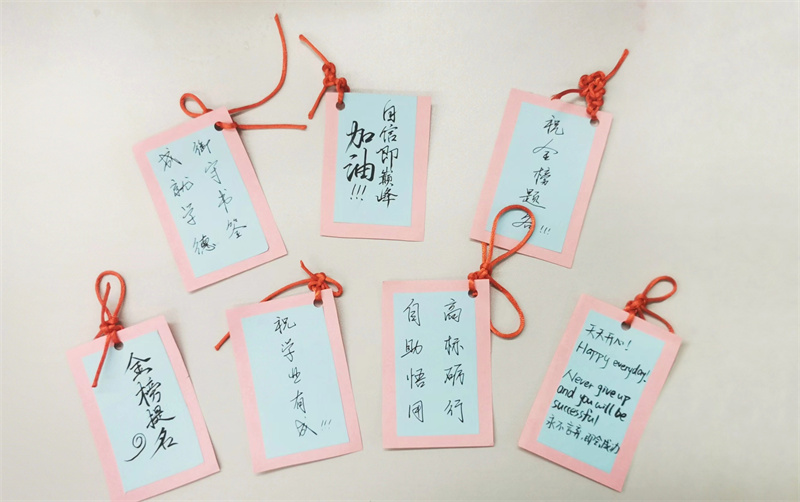 衔守书签
成就学德
自信即巅峰
加油!!!
祝金榜题名!!!
金榜提名
祝学业有成!!!
高标砺行
自助悟用
天天开心!
Happy everyday!
Never give up
and you will be
successful
永不言弃,即会成功